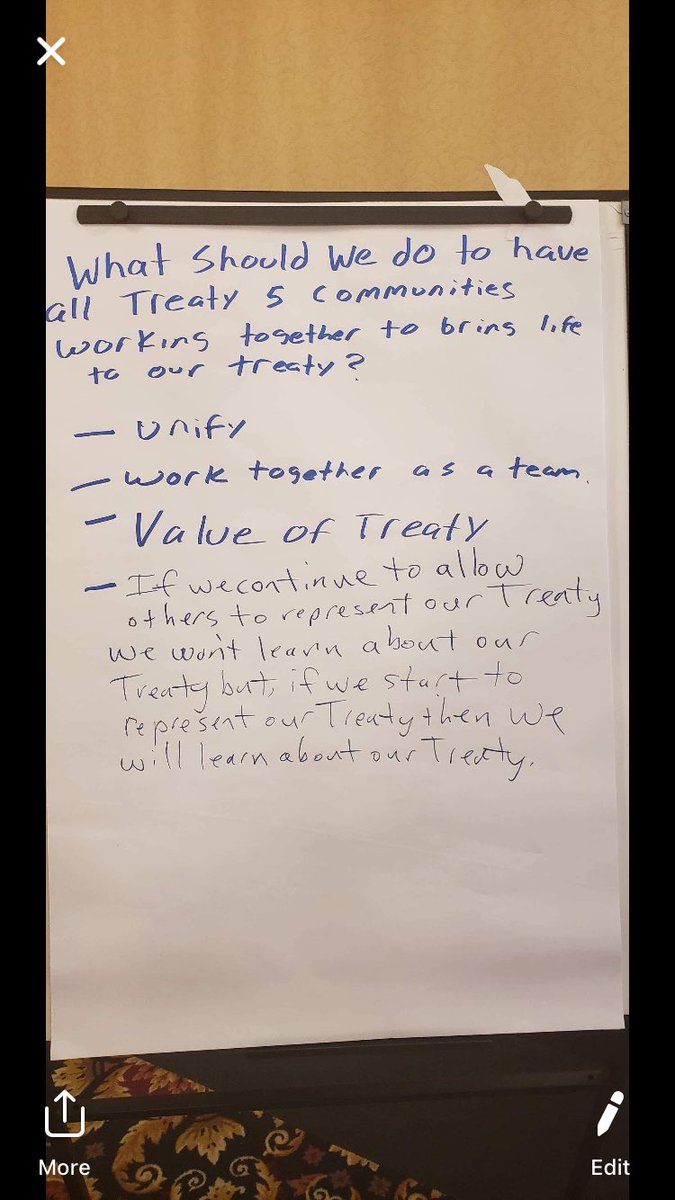 What Should We do to have
all Treaty 5 Communities
working together to bring life
to our treaty?
- Unify
- Work together as a team.
- Value of Treaty
- If we continue to allow
others to represent our Treaty
we won't learn about our
Treaty but, if we start to
represent our Treaty then we
will learn about our Treaty.
More
Edit